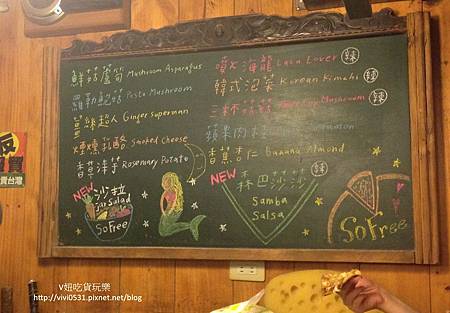 鮮菇蘆筍 Mushroom Asparagus
羅勒鮑菇 Pesto Mushroom
薑絲超人 Ginger Superman
煙燻乳酪 Smoked Cheese
香草洋芋 Rosemary Potato
噴火海龍 Lava Lover 辣
韓式泡菜 Korean Kimchi 辣
三杯菇菇 Mushroom 辣
蘋果肉桂
香蕉杏仁 Banana Almond
NEW 沙拉
Salad
SoFree
NEW 森巴莎莎
Samba
Salsa
SoFree
V妞吃貨玩樂
http://vivi0531.pixnet.net/blog